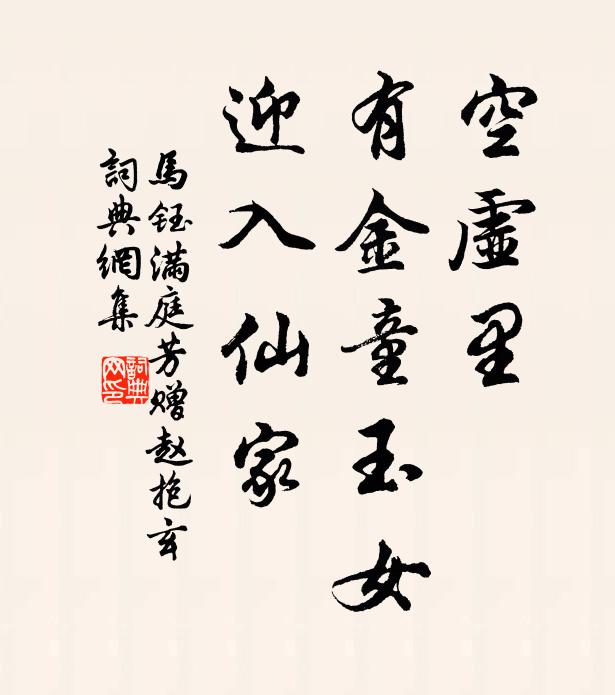 空虛里
有金童玉女
迎入仙家
馬鈺满庭芳赠赵抱玄
詞典網集
詞典
网印